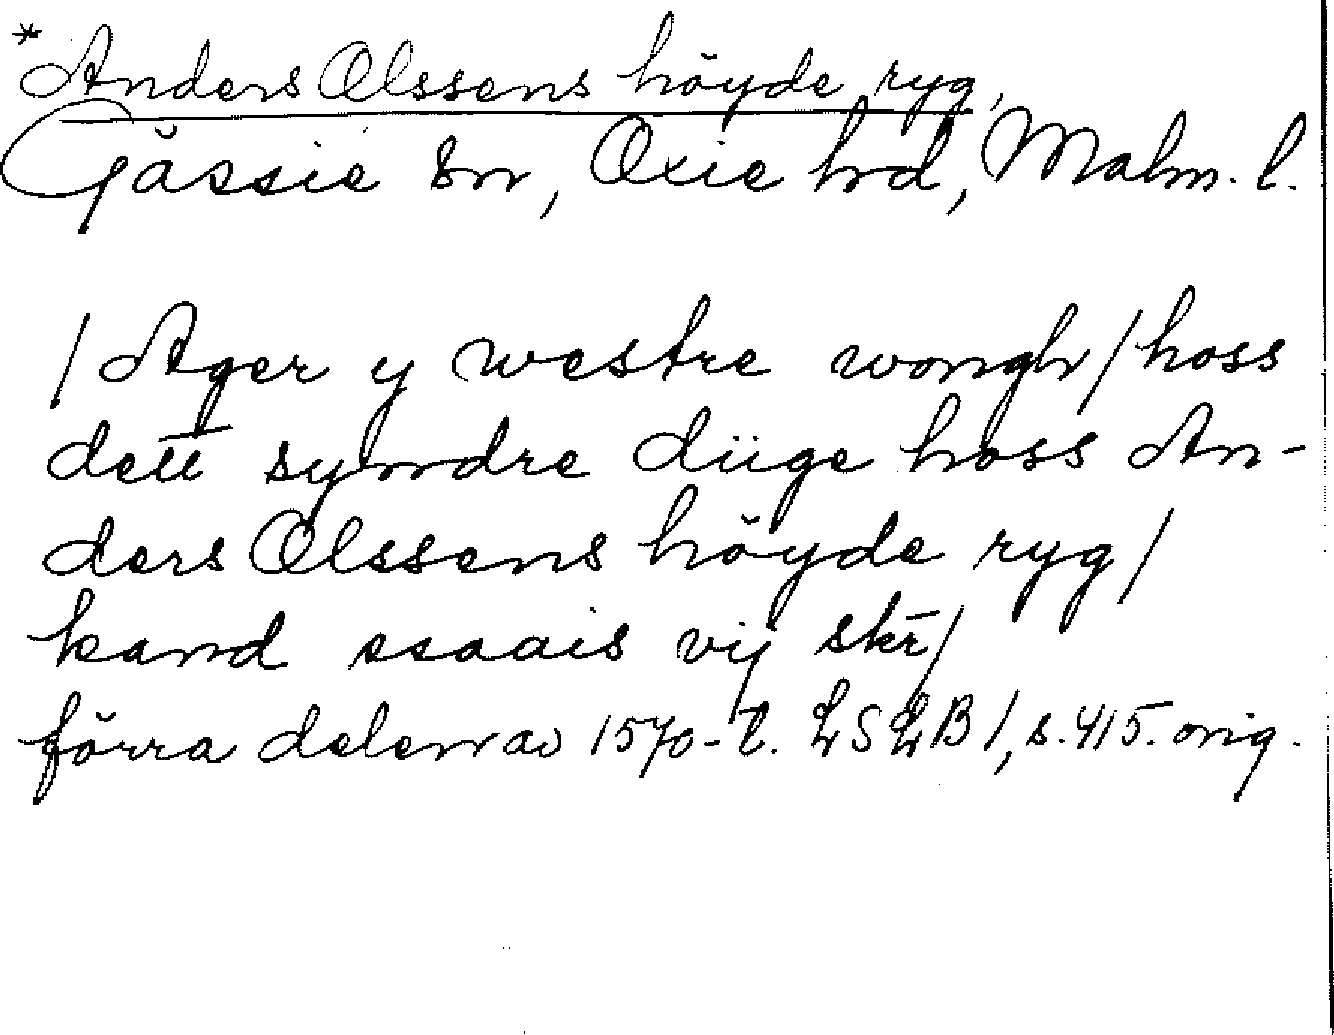 *Anders Olssens höyde ryg,
Gässie sn, Oxie hd, Malm. l.
/ Ager y westre wongh / hoss
dett syndre diige hoss An-
ders Olssens höyde ryg /
kand ssaais vij skr̄ /
förra delen av 1570-t. LSLB 1, s. 415. orig.